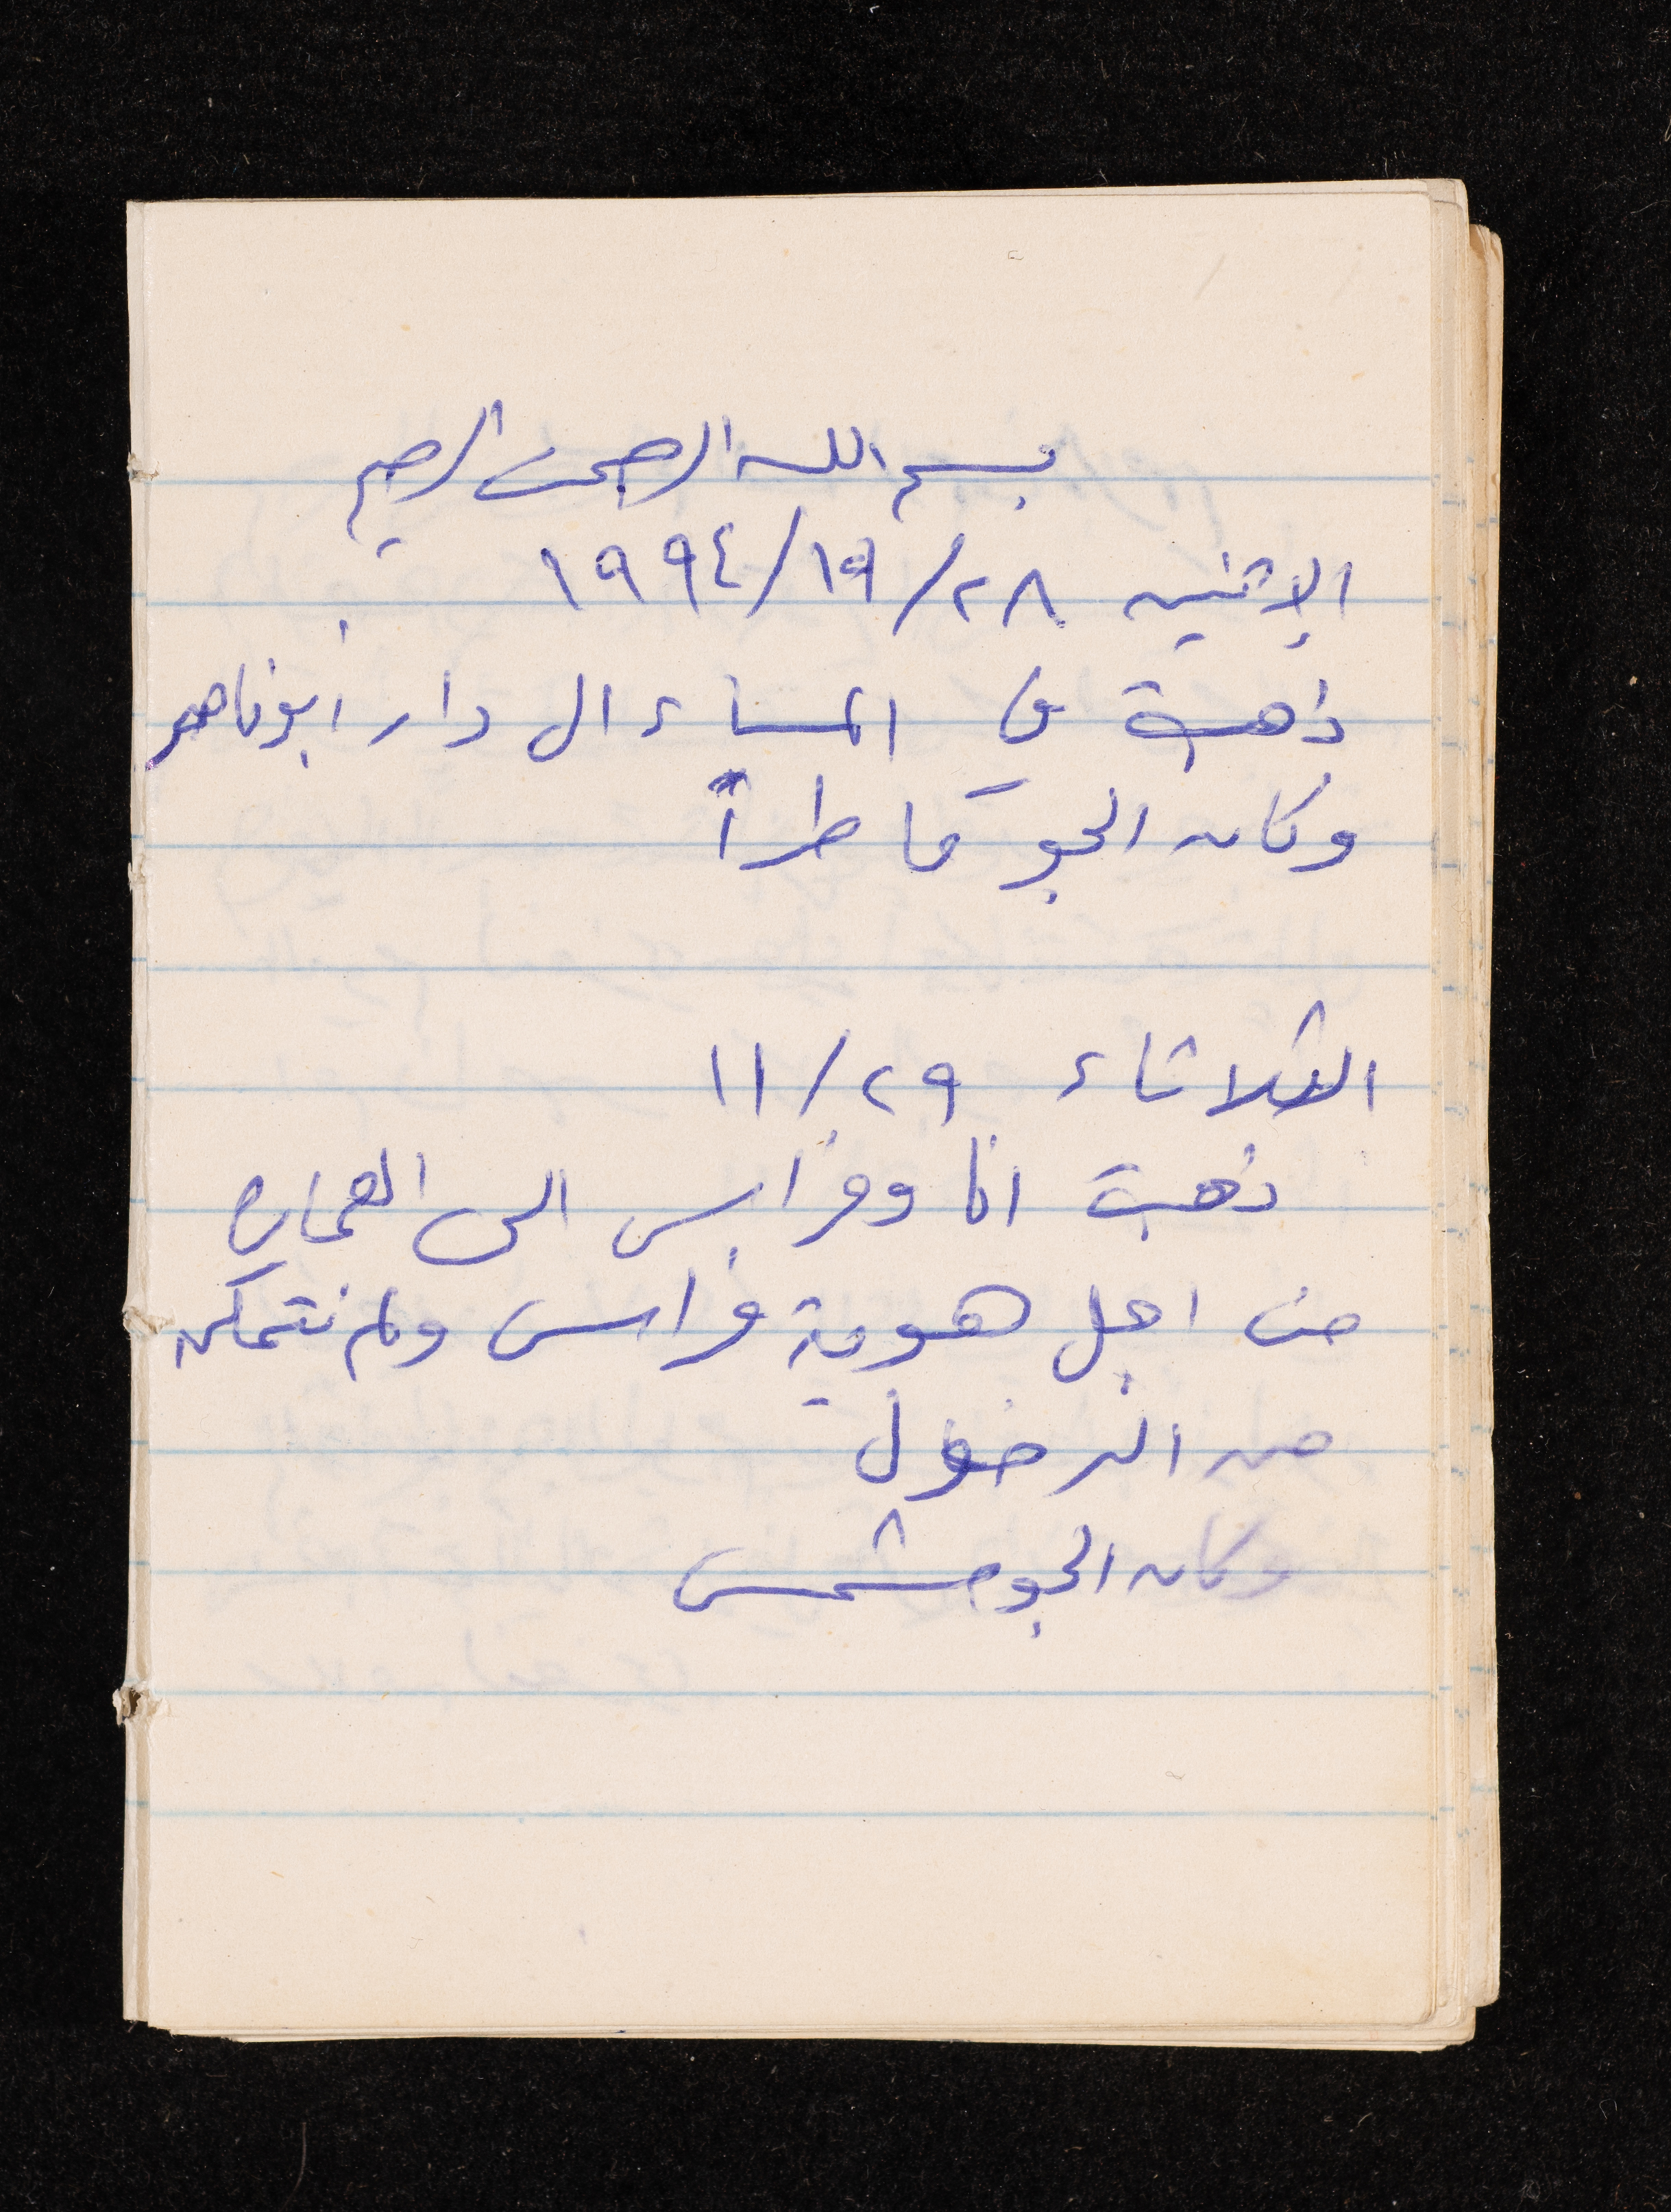 بسم الله الرحمن الرحيم
الإثنين ٢٨/١١/١٩٩٤
ذهبت في المساء الى دار ابو ناصر
وكان الجو ماطراً
الثلاثاء ٢٩/١١
ذهبت انا وفراس الى العمارة
من اجل هوية فراس ولم نتمكن
من الدخول
وكان الجو مشمس